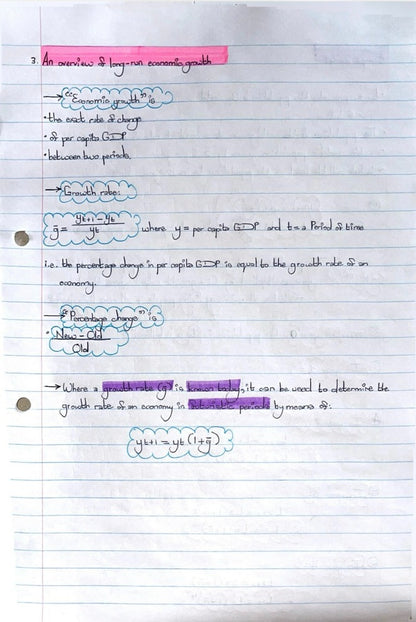 3. An overview of long-run economic growth
→ "Economic growth" is
• the exact rate of change
• of per capita GDP
• between two periods.
→ Growth rate:
ḡ = (yt+1 - yt) / yt where y = per capita GDP and t = a Period of time
i.e. the percentage change in per capita GDP is equal to the growth rate of an
economy.
→ "Percentage change" is
New - Old
Old
• → Where a growth rate (g) is known today, it can be used to determine the
growth rate of an economy in futuristic periods by means of:
yt+1 = yt (1+ḡ)